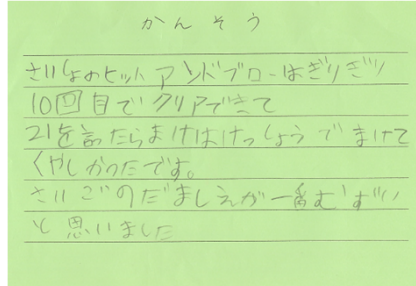 かんそう
さいしょのヒットアンドブローはぎりぎり
10回目でクリアできて
21を言ったらまけはけっしょうでまけて
くやしかったです。
さいごのだましえが一番むずい
と思いました